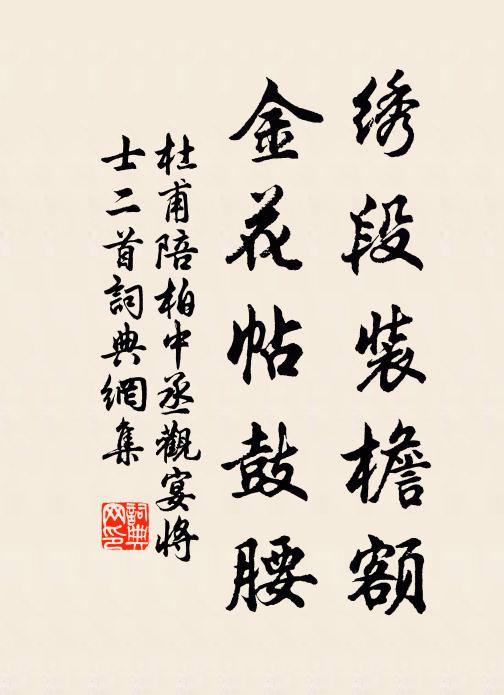 绣段装檐额
金花帖鼓腰
杜甫陪柏中丞觀宴將
士二首詞典網集
詞典
网印